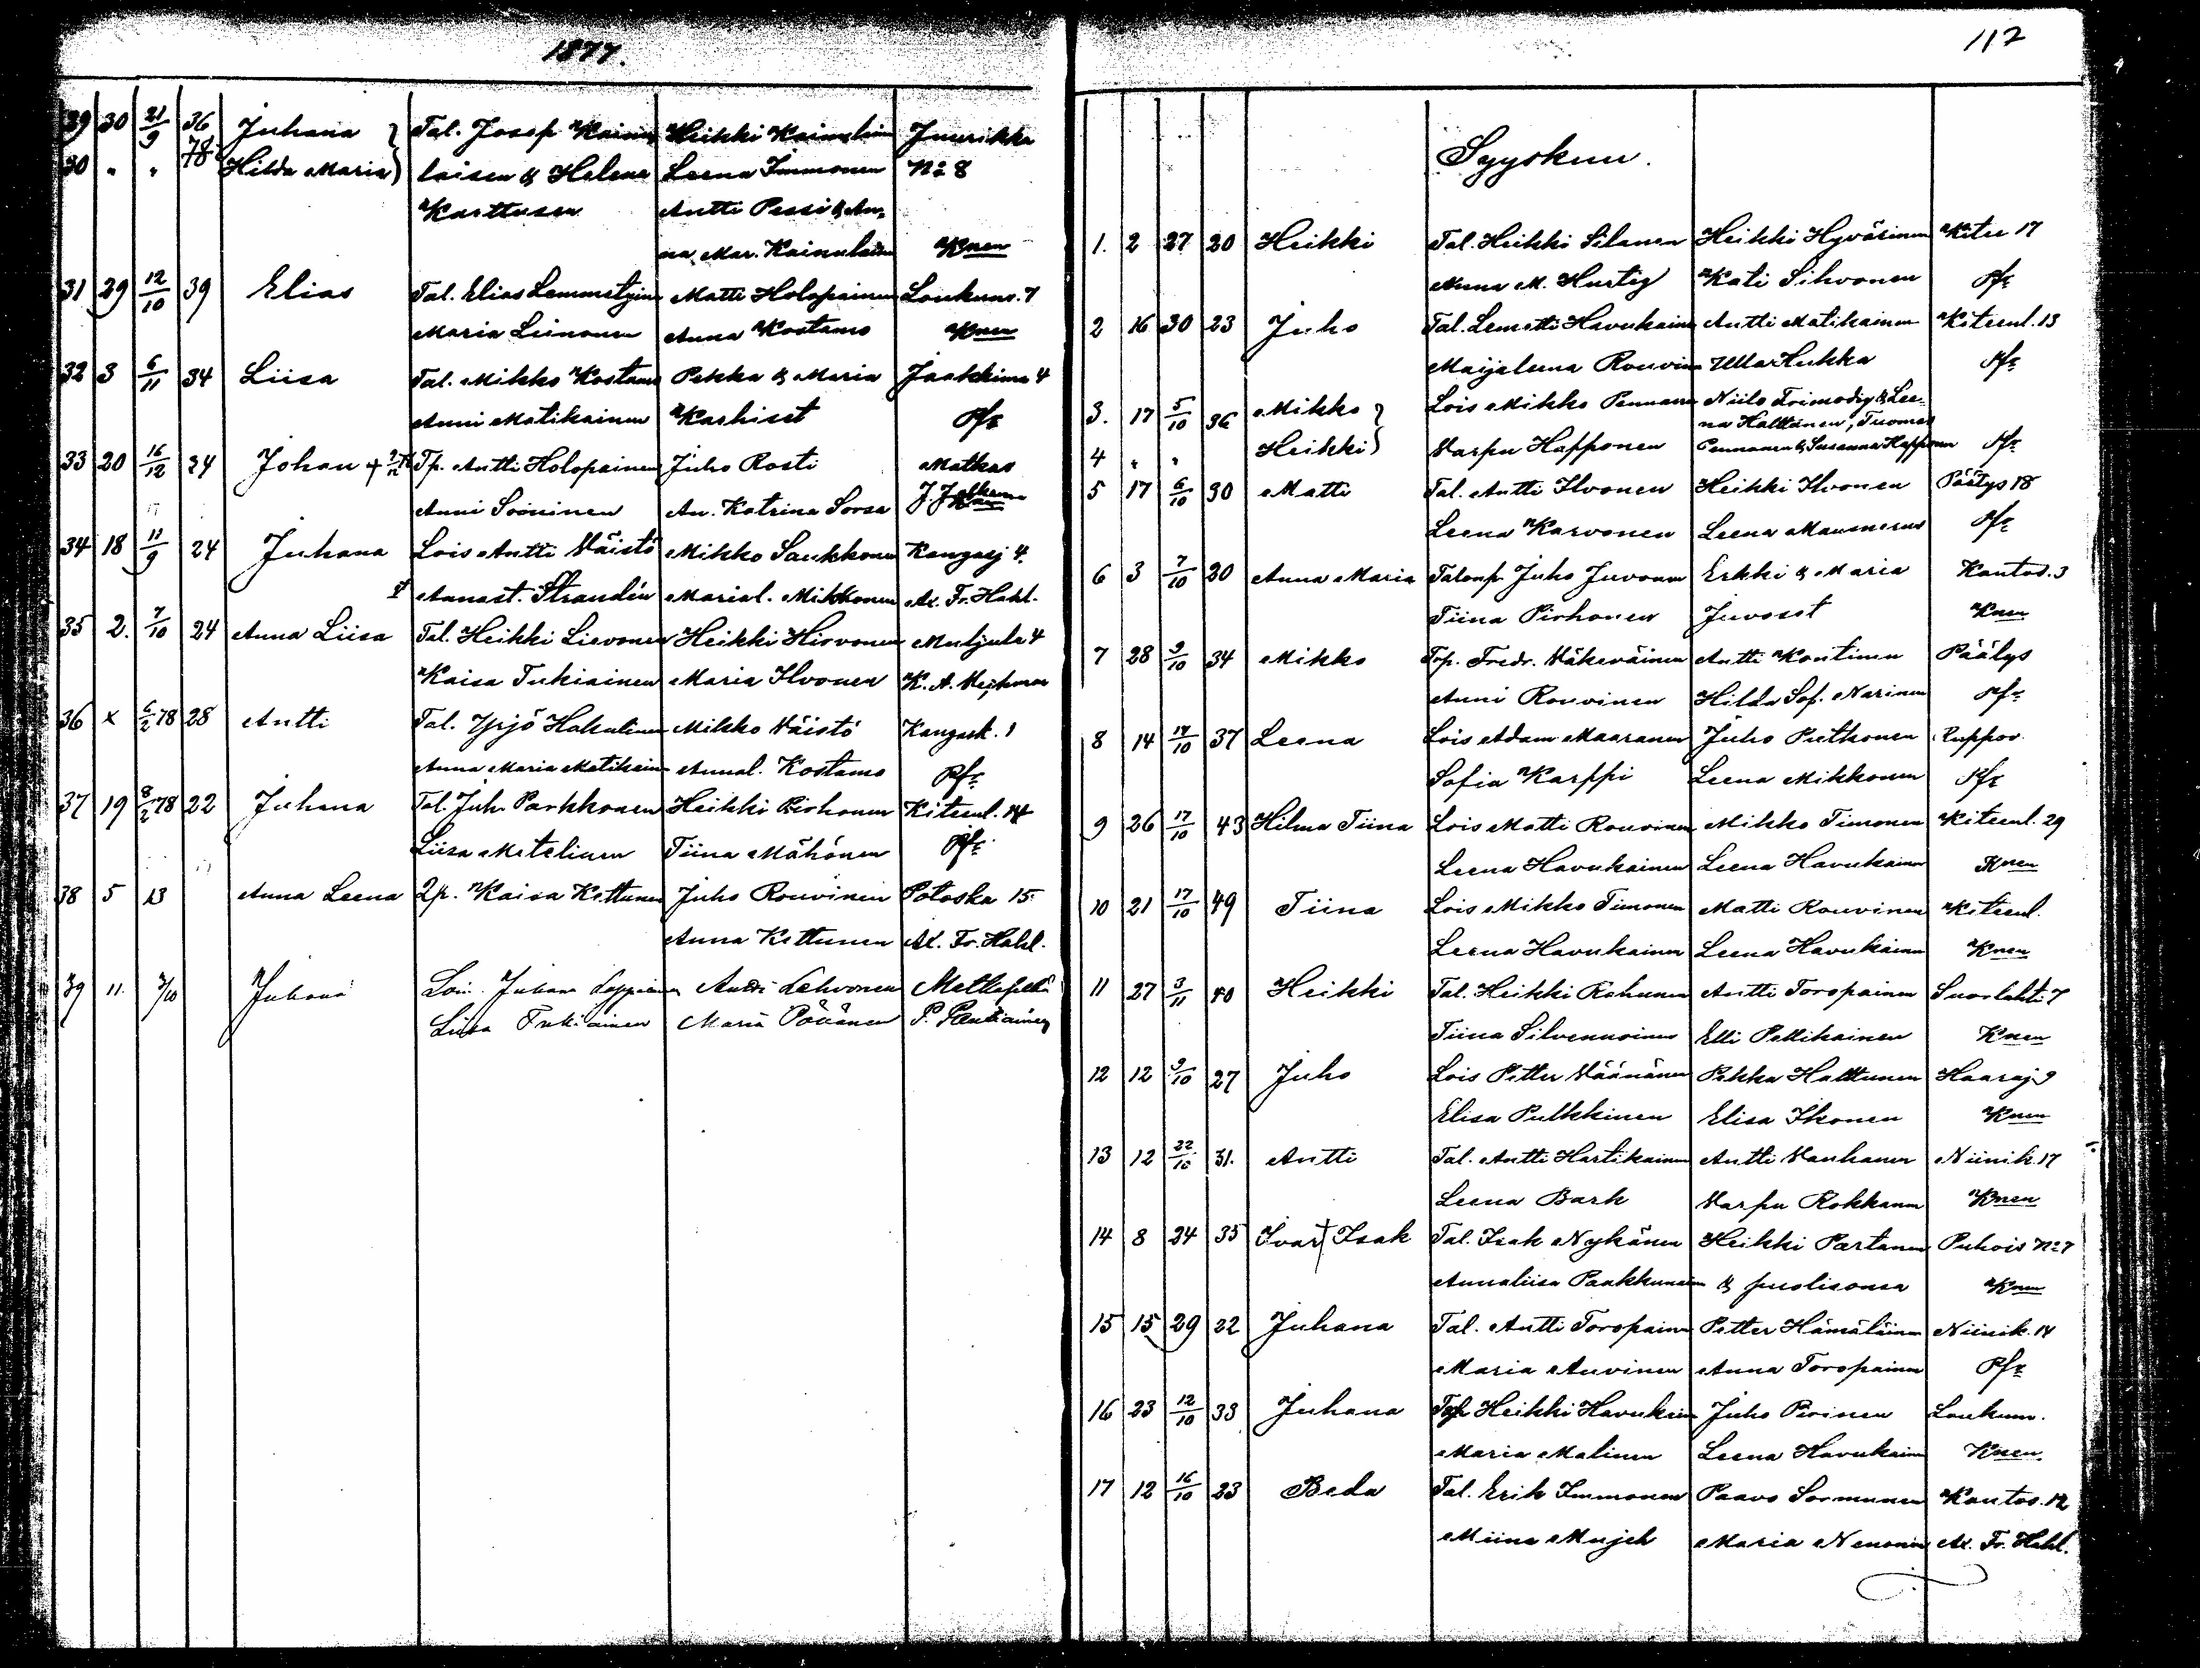 1877.
29 30 21/9 36 Juhana } Tal. Josef Kainu Heikki Kainulain Juurikka
30 " " 78 Hilda Maria } laisen & Helena Leena Immonen No 8
Karttusen Antti Pessi & An
na Mar. Kainulain Knen
31 29 12/10 39 Elias Tal. Elias Lemmetyin Matti Holopainen Loukunv. 7
Maria Leinonen Anna Kostamo Knen
32 3 6/11 34 Liisa Tal. Mikko Kostamo Pekka & Maria Jaakkima 4
Anni Matikainen Karhiset Pfr
33 20 16/12 24 Johan + Tp. Antti Holopainen Juho Rosti Matkas
Anni Soininen An. Katrina Sorsa
34 18 11/9 24 Juhana Lois Antti Väistö Mikko Saukkonen Kangasj 4.
Annast. Strandén Marial. Mikkonen Ax. Fr. Hahl.
35 2. 7/10 24 Anna Liisa Tal. Heikki Lievonen Heikki Hirvonen Muljula 4
Kaisa Tukiainen Maria Ilvonen K. A.
36 x 6/2 78 28 Antti Tal. Yrjö Hakulinen Mikko Väistö Kangask. 1
Anna Maria Matikain Annal. Kostamo Pfr
37 19 8/2 78 22 Juhana Tal. Juh. Parkkonen Heikki Pirhonen Kiteenl. 14
Liisa Metelinen Tiina Mähönen Pfr
38 5 13 Anna Leena Kaisa Kettunen Juho Rouvinen Potoska 15
Anna Kettunen Ax. Fr. Hahl.
39 11. 7/10 Juhana Loi. Juhan Antti Lehvonen
Liisa Tukiainen Maria Pöllänen P.
112
Syyskuu.
1. 2 27 20 Heikki Tal. Heikki Silanen Heikki Hyvärinen Kitee 17
Anna M. Hurtig Kati Sihvonen Pfr
2 16 30 23 Juho Tal. Lemetti Havukain Antti Matikainen Kiteenl. 13
Maijaleena Rouvin Ulla Hukka Pfr
3. 17 5/10 36 Mikko } Lois Mikko Pennanen Niilo Trimodig & Lee
na Halttunen, Tuomas
4 " " Heikki } Varpu Happonen Pennanen & Susanna Happonen Pfr
5 17 6/10 30 Matti Tal. Antti Ilvonen Heikki Ilvonen Päätys 18
Leena Karvonen Leena Mausnerus Pfr
6 3 7/10 20 Anna Maria Talonp. Juho Juvonen Erkki & Maria Kantos. 3
Tiina Pirhonen Juvoset Knen
7 28 9/10 34 Mikko Trp. Fredr. Väkeväinen Antti Kontinen Päätys
Anni Rouvinen Hilda Sof. Narinen Pfr
8 14 14/10 37 Leena Lois Adam Maaranen Juho Pulkonen Ruppov.
Sofia Karppi Leena Mikkonen Pfr
9 26 17/10 43 Hilma Tiina Lois Matti Rouvinen Mikko Timonen Kiteenl. 29
Leena Havukainen Leena Havukainen Knen
10 21 17/10 49 Tiina Lois Mikko Timonen Matti Rouvinen Kiteenl.
Leena Havukainen Leena Havukainen Knen
11 27 3/11 40 Heikki Tal. Heikki Rahunen Antti Toropainen Suorlahti 7
Tiina Silvennoinen Elli Pellikainen Knen
12 12 9/10 27 Juho Lois Petter Väänänen Pekka Halttunen Haaraj. 9
Elisa Pulkkinen Elisa Ikonen Knen
13 12 22/10 31. Antti Tal. Antti Hartikainen Antti Vanhanen Niinik. 17
Leena Bark Varpu Rokkanen Knen
14 8 24 35 Ivar + Isak Tal. Isak Nykänen Heikki Partanen Puhois No 7
Annaliisa Paakkunainen & puolisonsa Knen
15 15 29 22 Juhana Tal. Antti Toropainen Petter Hämäläinen Niinik. 14
Maria Auvinen Anna Toropainen Pfr
16 23 12/10 33 Juhana Heikki Havukain Juho Piroinen Loukunv.
Maria Malinen Leena Havukain Knen.
17 12 16/10 23 Beda Tal. Erik Immonen Paavo Sormunen Kantos. 12
Miina Mujeh Maria Nenonen Ax. Fr. Hahl.